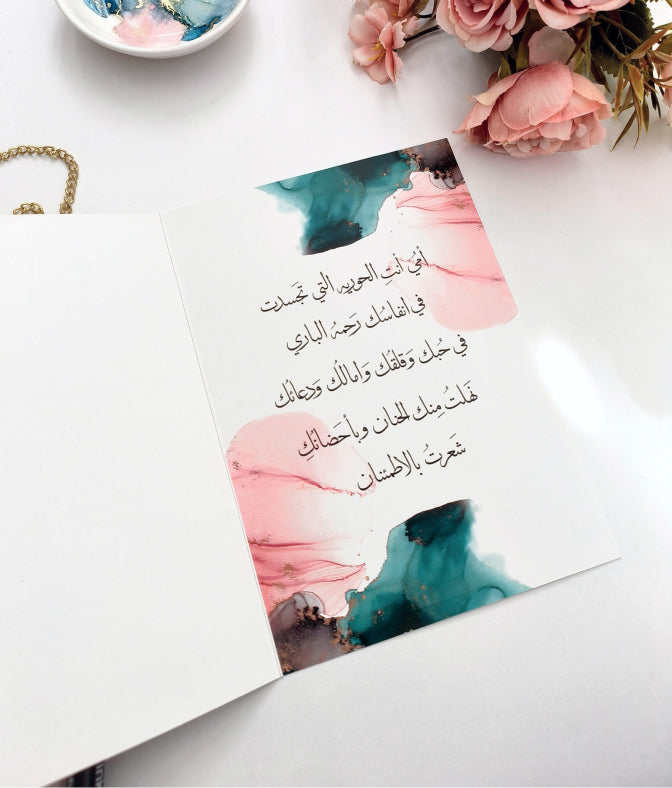 أمُي أنتِ الحوريه التي تجَسدت
في انفاسُك رَحمهُ الباري
في حُبك وَقلقُك وَامالُك وَدعائُك
نَهلتُ مِنك الحَنان وبأحَضانُكِ
شَعرتُ بالاطمئنان